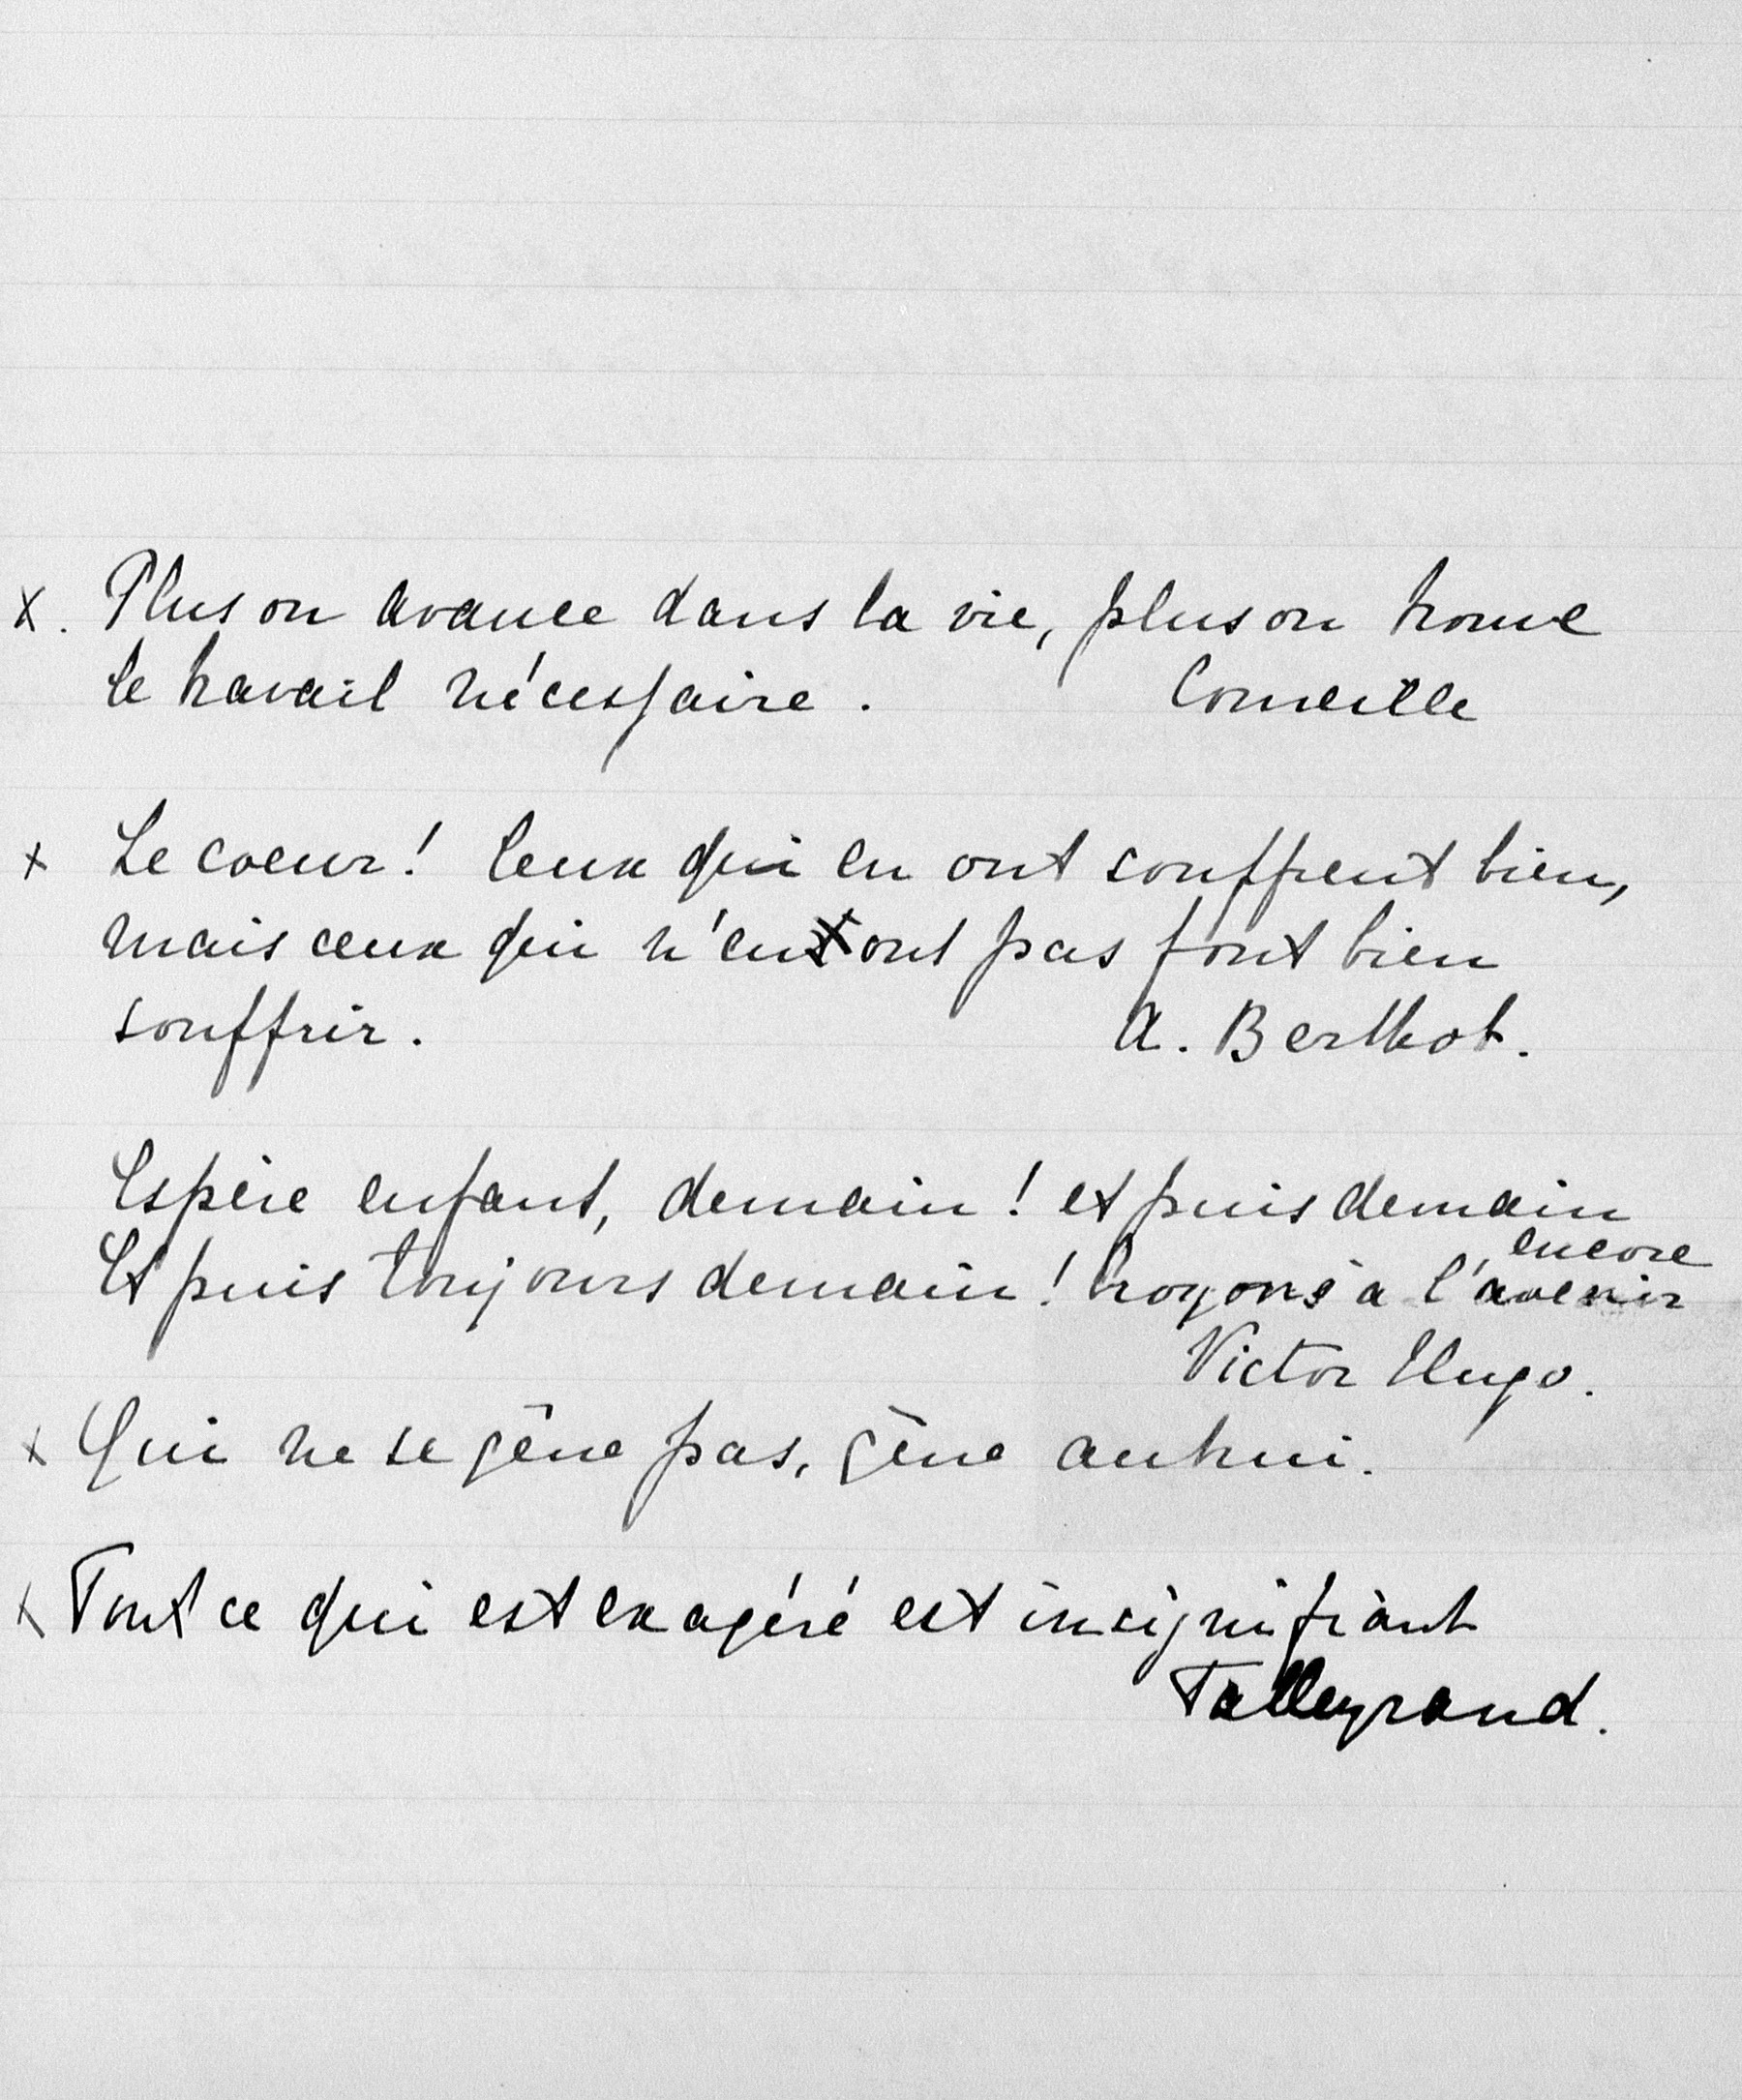 x. Plus on avance dans la vie, plus on trouve
le travail nécessaire. Corneille
x Le coeur! Ceux qui en ont souffrent bien,
mais ceux qui n'en ont pas font bien
souffrir. A. Berthot.
Espère enfant, demain! et puis demain
encore
Et puis toujours demain! Croyons à l'avenir
Victor Hugo.
x Qui ne se gêne pas, gêne autrui.
x Tout ce qui est exagéré est insignifiant
Talleyrand.